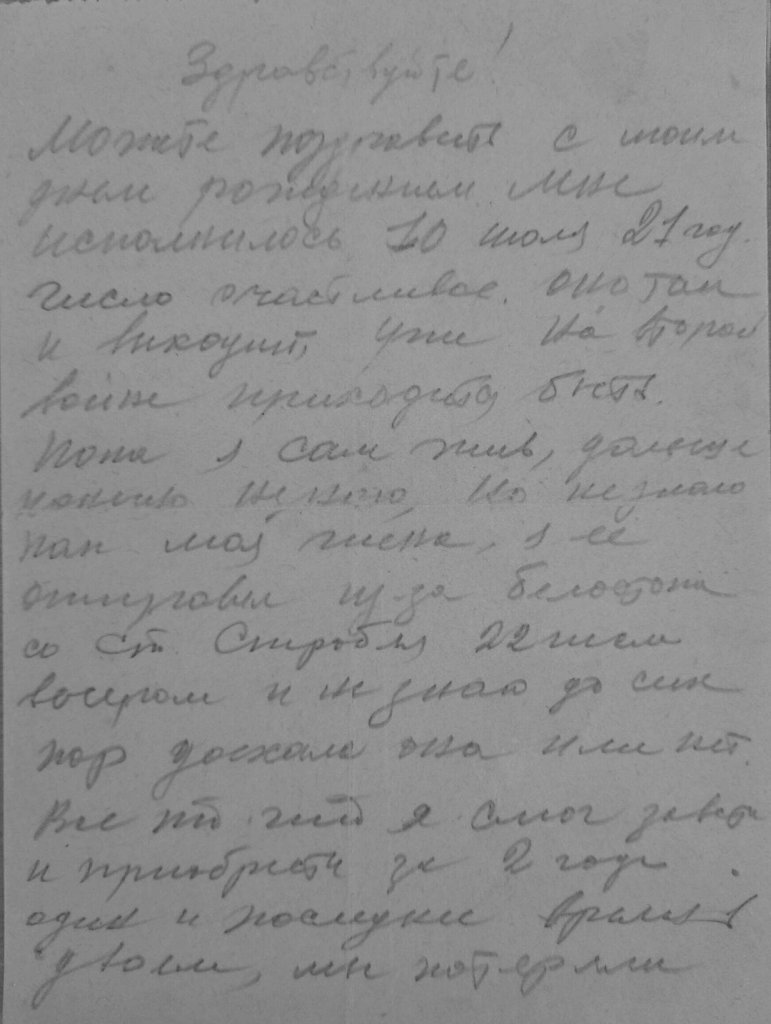 Здравствуйте!
Можете поздравить с моим
днем рождением мне
исполнилось 10 июля 21 год.
число счастливое. оно так
и выходит, уже на второй
войне приходится быть.
Пока я сам жив, дальше
никого, но не знаю
как моя жена, я ее
отправил из-за Белостока
со ст. 22 июня
вечером и не знаю до сих
пор доехала она или нет.
Все то что я смог
и приобрести за 2 года
один и последнее время
двоем, мы потеряли